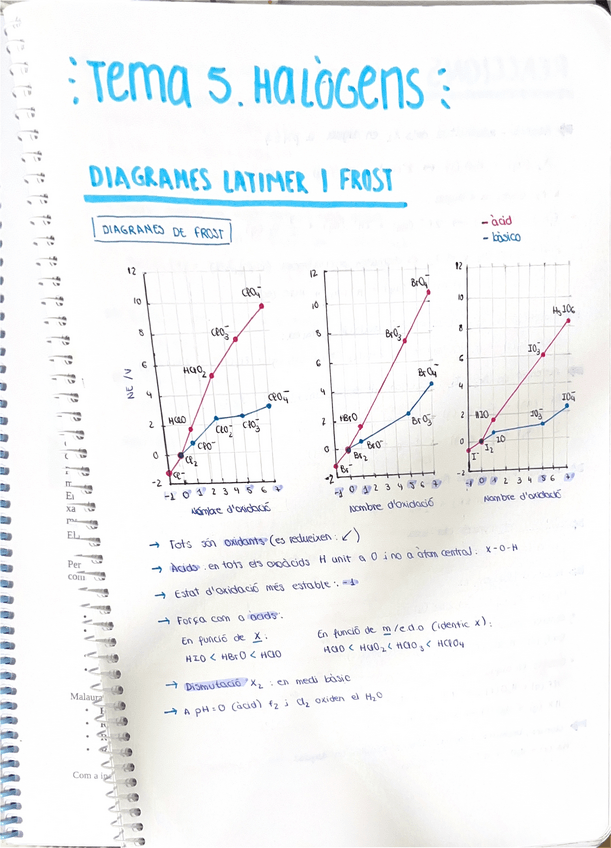 Tema 5. HALÒGENS
DIAGRAMES LATIMER I FROST
DIAGRAMES DE FROST
- àcid
- bàsico
12
10
8
6
4
2
0
-2
NE /V
ClO₄⁻
ClO₃⁻
HClO₂
HClO
Cl₂
Cl⁻
ClO⁻
ClO₂⁻
ClO₃⁻
ClO₄⁻
-1 0 1 2 3 4 5 6 7
Nombre d'oxidació
12
10
8
6
4
2
0
-2
BrO₄⁻
BrO₃⁻
HBrO
BrO⁻
Br₂
Br⁻
BrO₃⁻
BrO₄⁻
-1 0 1 2 3 4 5 6 7
Nombre d'oxidació
12
10
8
6
4
2
0
-2
H₅IO₆
IO₃⁻
HIO
IO
I₂
I⁻
IO₃⁻
IO₄⁻
-1 0 1 2 3 4 5 6 7
Nombre d'oxidació
→ Tots són oxidants (es redueixen: ↙)
→ Àcids: en tots els oxoàcids H unit a O i no a àtom central. X-O-H
→ Estat d'oxidació més estable: -1
→ Força com a àcids:
En funció de X:
HIO < HBrO < HClO
En funció de m/e.d.o (idèntic X):
HClO < HClO₂ < HClO₃ < HClO₄
→ Dismutació X₂: en medi bàsic
→ A pH=0 (àcid) F₂ i Cl₂ oxiden el H₂O
xa
El
Per
com
Malaura